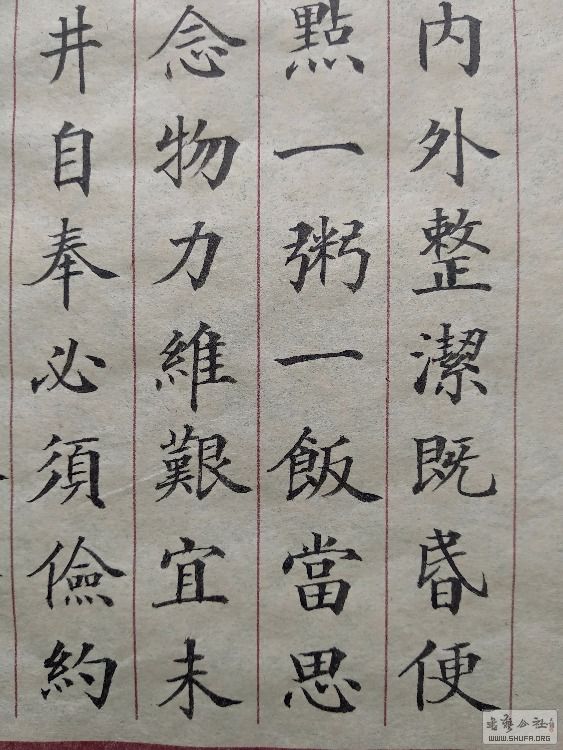 内外整潔既昏便
點一粥一飯當思
念物力維艱宜未
井自奉必須儉約
書藝公社
WWW.SHUFA.ORG